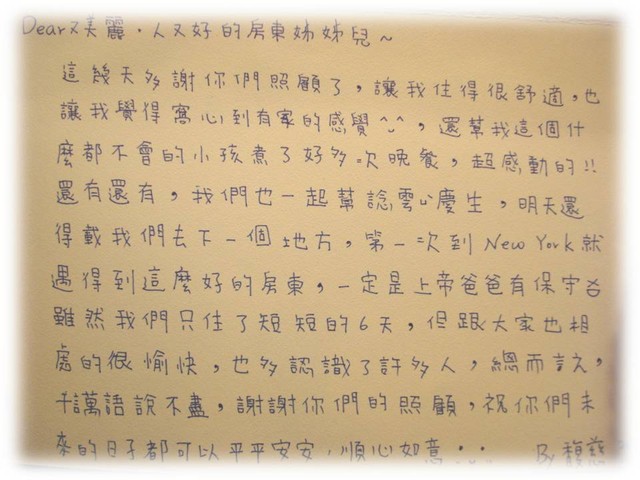 Dear又美麗.人又好的房東姊姊兒~
這幾天多謝你們照顧了,讓我住得很舒適,也
讓我覺得窩心到有家的感覺^^,還幫我這個什
麼都不會的小孩煮了好多次晚餐,超感動的!!
還有還有,我們也一起幫諗雲心慶生,明天還
得載我們去下一個地方,第一次到New York就
遇得到這麼好的房東,一定是上帝爸爸有保守
雖然我們只住了短短的6天,但跟大家也相
處的很愉快,也多認識了許多人,總而言之,
千萬語說不盡,謝謝你們的照顧,祝你們未
來的日子都可以平平安安,順心如意...By馥慈